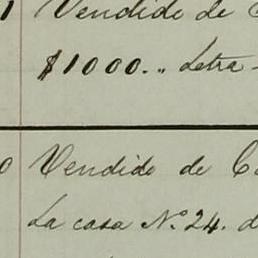 1 Vendido de C
$1000.„ Letra
0 Vendido de Ca
La casa Nº 24. d